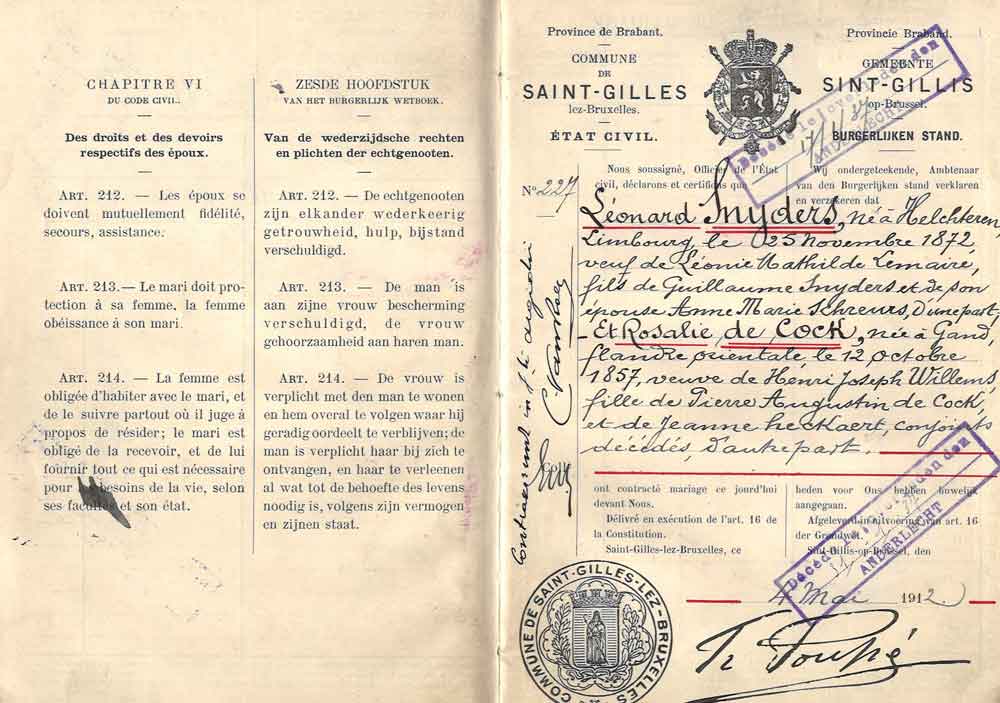 CHAPITRE VI
DU CODE CIVIL.
Des droits et des devoirs
respectifs des époux.
ART. 212. — Les époux se
doivent mutuellement fidélité,
secours, assistance.
ART. 213. — Le mari doit pro-
tection à sa femme, la femme
obéissance à son mari.
ART. 214. — La femme est
obligée d'habiter avec le mari, et
de le suivre partout où il juge à
propos de résider; le mari est
obligé de la recevoir, et de lui
fournir tout ce qui est nécessaire
pour les besoins de la vie, selon
ses facultés et son état.
ZESDE HOOFDSTUK
VAN HET BURGERLIJK WETBOEK.
Van de wederzijdsche rechten
en plichten der echtgenooten.
ART. 212. — De echtgenooten
zijn elkander wederkeerig
getrouwheid, hulp, bijstand
verschuldigd.
ART. 213. — De man is
aan zijne vrouw bescherming
verschuldigd, de vrouw
gehoorzaamheid aan haren man.
ART. 214. — De vrouw is
verplicht met den man te wonen
en hem overal te volgen waar hij
geradig oordeelt te verblijven; de
man is verplicht haar bij zich te
ontvangen, en haar te verleenen
al wat tot de behoefte des levens
noodig is, volgens zijn vermogen
en zijnen staat.
Province de Brabant.
COMMUNE
DE
SAINT-GILLES
lez-Bruxelles.
ÉTAT CIVIL.
Provincie Braband.
GEMEENTE
SINT-GILLIS
op-Brussel.
BURGERLIJKEN STAND.
Décédé le
ANDERLECHT
Nº 227
Nous soussigné, Officier de l'État
civil, déclarons et certifions que
Wij ondergeteekende, Ambtenaar
van den Burgerlijken stand verklaren
en verzekeren dat
Léonard Snyders, né à Helchteren,
Limbourg le 25 novembre 1872,
veuf de Léonie Mathilde Lemaire,
fils de Guillaume Snyders et de son
épouse Anne Marie Schreurs, d'une part,
Et Rosalie de Cock, née à Gand,
flandre orientale le 12 octobre
1857, veuve de Henri Joseph Willems,
fille de Pierre Augustin de Cock,
et de Jeanne Heckaert, conjoints
décédés, d'autre part.
ont contracté mariage ce jourd'hui
devant Nous.
Délivré en exécution de l'art. 16 de
la Constitution.
Saint-Gilles-lez-Bruxelles, ce
heden voor Ons hebben huwelijk
aangegaan.
Afgeleverd in uitvoering van art. 16
der Grondwet.
Sint-Gillis-op-Brussel, den
4 Mai 1912
Décédé le overleden den
ANDERLECHT
COMMUNE DE SAINT-GILLES-LEZ-BRUXELLES